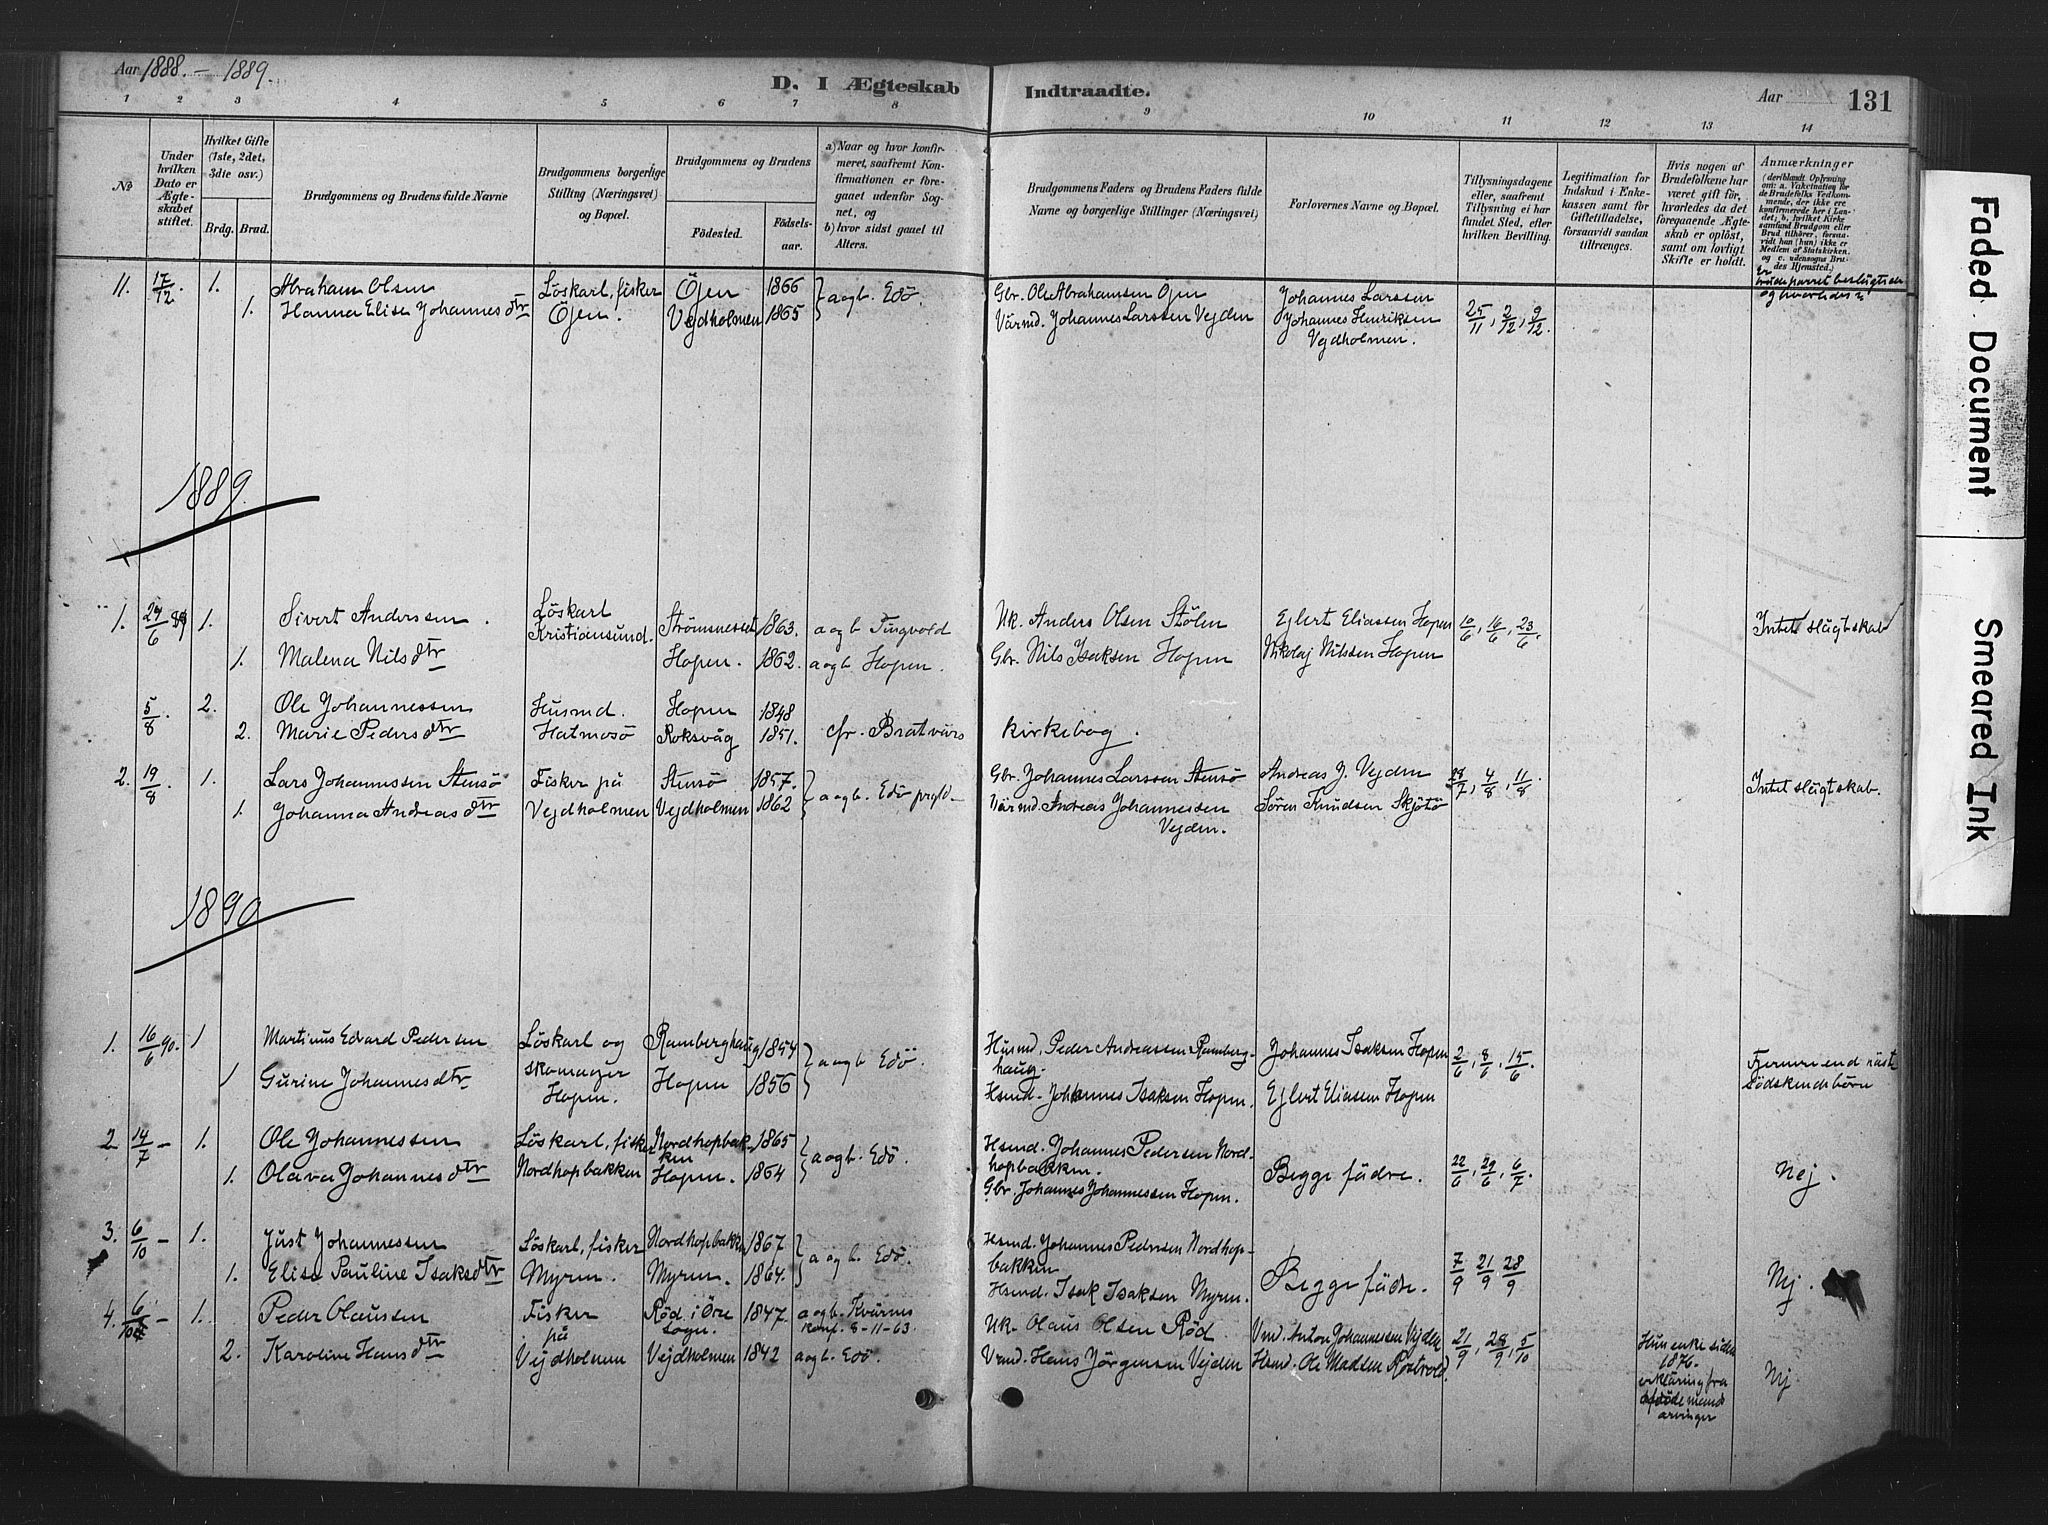 Aar 1888. – 1889.
D. I Ægteskab Indtraadte.
Aar
131
1 2 3 4 5 6 7 8 9 10 11 12 13 14
No
Under hvilken Dato er Ægteskabet stiftet.
Hvilket Gifte (1ste, 2det, 3die osv.)
Brdg. Brud.
Brudgommens og Brudens fulde Navne
Brudgommens borgerlige Stilling (Næringsvei) og Bopæl.
Brudgommens og Brudens
Födested. Födselsaar.
a) Naar og hvor konfirmeret, saafremt Konfirmationen er foregaaet udenfor Sognet, og
b) hvor sidst gaaet til Alters.
Brudgommens Faders og Brudens Faders fulde Navne og borgerlige Stillinger (Næringsvei)
Forlovernes Navne og Bopæl.
Tillysningsdagene eller, saafremt Tillysning ei har fundet Sted, efter hvilken Bevilling.
Legitimation for Indskud i Enkekassen samt for Giftetilladelse, forsaavidt saadan tiltrænges.
Hvis nogen af Brudefolkene har været gift før, hvorledes da det foregaaende Ægteskab er oplöst, samt om lovligt Skifte er holdt.
Anmærkninger
(deriblandt Oplysning om: a. Vakcination for de Brudefolks Vedkommende, der ikke ere konfirmerede her i Landet; b. hvilket Kirkesamfund Brudgom eller Brud tilhörer, forsaavidt han (hun) ikke er Medlem af Statskirken, og c. udensogns Brudes Hjemsted.)
Er brudeparret beslægtede og hvorledes?
11. 17/12 1. Abraham Olsen Löskarl, fisker Öjen 1866 } a og b. Edö. Gbr. Ole Abrahamsen Öjen Johannes Larssen 25/11, 2/12, 9/12.
1. Hanna Elise Johannesdtr Öjen. Vejdholmen 1865 Värmd. Johannes Larssen Vejden Johannes Henriksen
Vejdholmen.
1889.
1. 24/6 89 1. Sivert Anderssen. Löskarl Kristiansund. Strömsneset 1863. a og b Tingvold Uk. Anders Olsen Stölen Ejlert Eliassen Hopen 10/6, 16/6, 23/6. Intet slægtskab
1. Malena Nilsdtr Hopen. 1862. a og b. Hopen. Gbr. Nils Isaksen Hopen Nikolaj Nilssen Hopen
5/8. 2. Ole Johannessen Husmd. Hopen 1848
2. Marie Pedersdtr Hatmosö Roksvåg 1851. cfr. Bratvärs kirkebog.
2. 19/8 1. Lars Johannessen Stensö Fisker på Stensö 1857. } a og b. Edö prgld Gbr. Johannes Larssen Stensö Andreas J. Vejden 28/7, 4/8, 11/8. Intet slægtskab.
1. Johanna Andreasdtr Vejdholmen Vejdholmen 1862 Värmd. Andreas Johannessen Sören Knudsen Skjötö
Vejden.
1890
1. 16/6 90. 1 Martinus Edvard Pedersen Löskarl og Ramberghaug 1854 } a og b Edö. Husmd. Peder Andreassen Ramberg- Johannes Isaksen Hopen 2/6, 8/6, 15/6. Fjernere end näst
haug.
1 Gurine Johannesdtr skomager Hopen. Hopen 1856 Hsmd. Johannes Isaksen Hopen. Ejlert Eliasen Hopen södskendebörn
2 14/7 – 1. Ole Johannessen Löskarl, fisker Nordhopbakken 1865 } a og b. Edö. Hsmd. Johannes Pedersen Nord-
hopbakken. Begge fädre. 22/6, 29/6, 6/7. Nej.
1. Olava Johannesdtr Nordhopbakken Hopen. 1864 Gbr. Johannes Johannessen Hopen.
3. 6/10 – 1. Just Johannessen Löskarl, fisker Nordhopbakken 1867 } a og b. Edö. Hsmd. Johannes Pedersen Nordhop-
bakken Begge fädre. 7/9 21/9 28/9 Nej.
1. Elise Pauline Isaksdtr Myren. Myren. 1864. Hsmd. Isak Isaksen Myren.
4. 6/10 – 1. Peder Olaussen Fisker på Röd i Öre Sogn. 1847. a og b. Kvärnes Konf. 8-11-63. Uk. Olaus Olsen Röd. Vmd. Anton Johannessen Vejden 21/9, 28/9, 5/10
2. Karoline Hansdtr Vejdholmen Vejdholmen 1842 a og b. Edö. Vrmd. Hans Jörgensen Vejden Hsmd. Ole Madsen Röstvold. Hun enke siden 1876. erkläring fra afdöde mands arvinger Nej
Faded Document
Smeared Ink